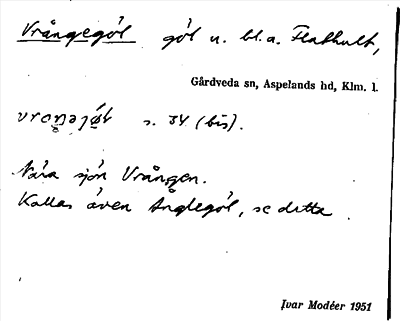 Vrångegöl göl u. bl.a. Flathult,
Gårdveda sn, Aspelands hd, Klm. l.
s. 34 (bis).
Nära sjön Vrången.
Kallas även Ånglegöl, se detta
Ivar Modéer 1951